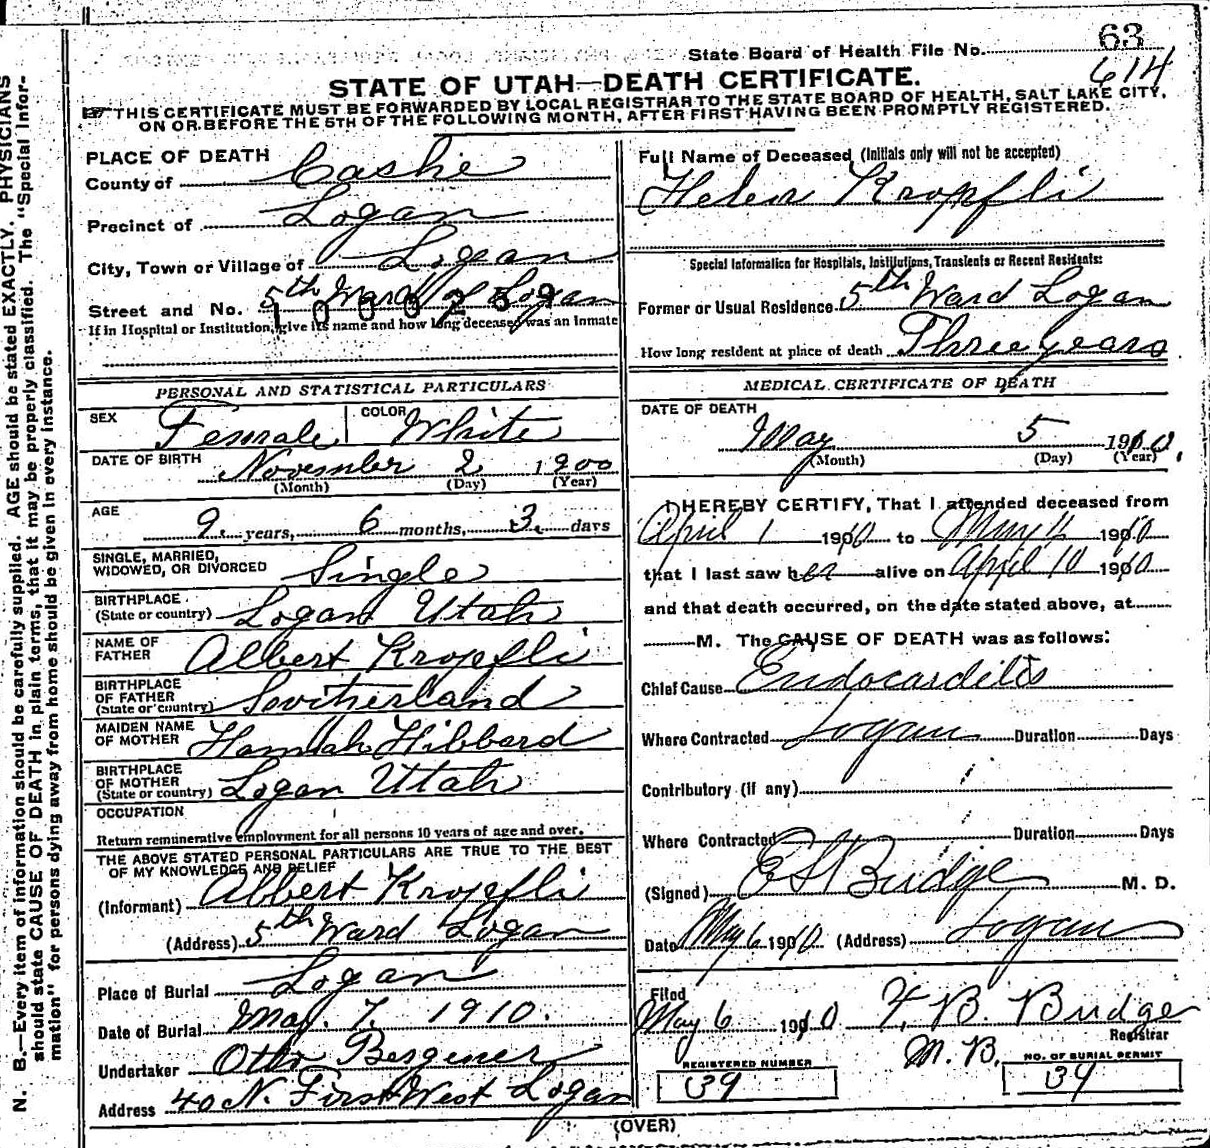 63
State Board of Health File No. 614
STATE OF UTAH—DEATH CERTIFICATE.
☞ THIS CERTIFICATE MUST BE FORWARDED BY LOCAL REGISTRAR TO THE STATE BOARD OF HEALTH, SALT LAKE CITY,
ON OR BEFORE THE 5TH OF THE FOLLOWING MONTH, AFTER FIRST HAVING BEEN PROMPTLY REGISTERED.
N. B.—Every item of information should be carefully supplied. AGE should be stated EXACTLY. PHYSICIANS
should state CAUSE OF DEATH in plain terms, that it may be properly classified. The "Special Infor-
mation" for persons dying away from home should be given in every instance.
PLACE OF DEATH
County of Cashe
Precinct of Logan
City, Town or Village of Logan
Street and No. 5th Ward of Logan
1000259
If in Hospital or Institution, give its name and how long deceased was an inmate
PERSONAL AND STATISTICAL PARTICULARS
SEX Female COLOR White
DATE OF BIRTH November 2 1900
(Month) (Day) (Year)
AGE
9 years, 6 months, 3 days
SINGLE, MARRIED,
WIDOWED, OR DIVORCED Single
BIRTHPLACE
(State or country) Logan Utah
NAME OF
FATHER Albert Kropfli
BIRTHPLACE
OF FATHER
(State or country) Switherland
MAIDEN NAME
OF MOTHER Hannah Hibbard
BIRTHPLACE
OF MOTHER
(State or country) Logan Utah
OCCUPATION
Return remunerative employment for all persons 10 years of age and over.
THE ABOVE STATED PERSONAL PARTICULARS ARE TRUE TO THE BEST
OF MY KNOWLEDGE AND BELIEF
(Informant) Albert Kropfli
(Address) 5th Ward Logan
Place of Burial Logan
Date of Burial May. 7. 1910.
Undertaker Otto Bergener
Address 40 N. First West Logan
Full Name of Deceased (Initials only will not be accepted)
Helen Kropfli
Special Information for Hospitals, Institutions, Transients or Recent Residents:
Former or Usual Residence 5th Ward Logan
How long resident at place of death Three years
MEDICAL CERTIFICATE OF DEATH
DATE OF DEATH
May 5 1910.
(Month) (Day) (Year)
I HEREBY CERTIFY, That I attended deceased from
April 1 1910 to May 4 1910
that I last saw her alive on April 10 1910
and that death occurred, on the date stated above, at
M. The CAUSE OF DEATH was as follows:
Chief Cause Endocarditis
Where Contracted Logan Duration Days
Contributory (if any)
Where Contracted Duration Days
(Signed) E S Budge M. D.
Date May 6 1910 (Address) Logan
Filed
May 6 1910 F. B. Budge
Registrar
M. B.
REGISTERED NUMBER
39
NO. OF BURIAL PERMIT
39
(OVER)